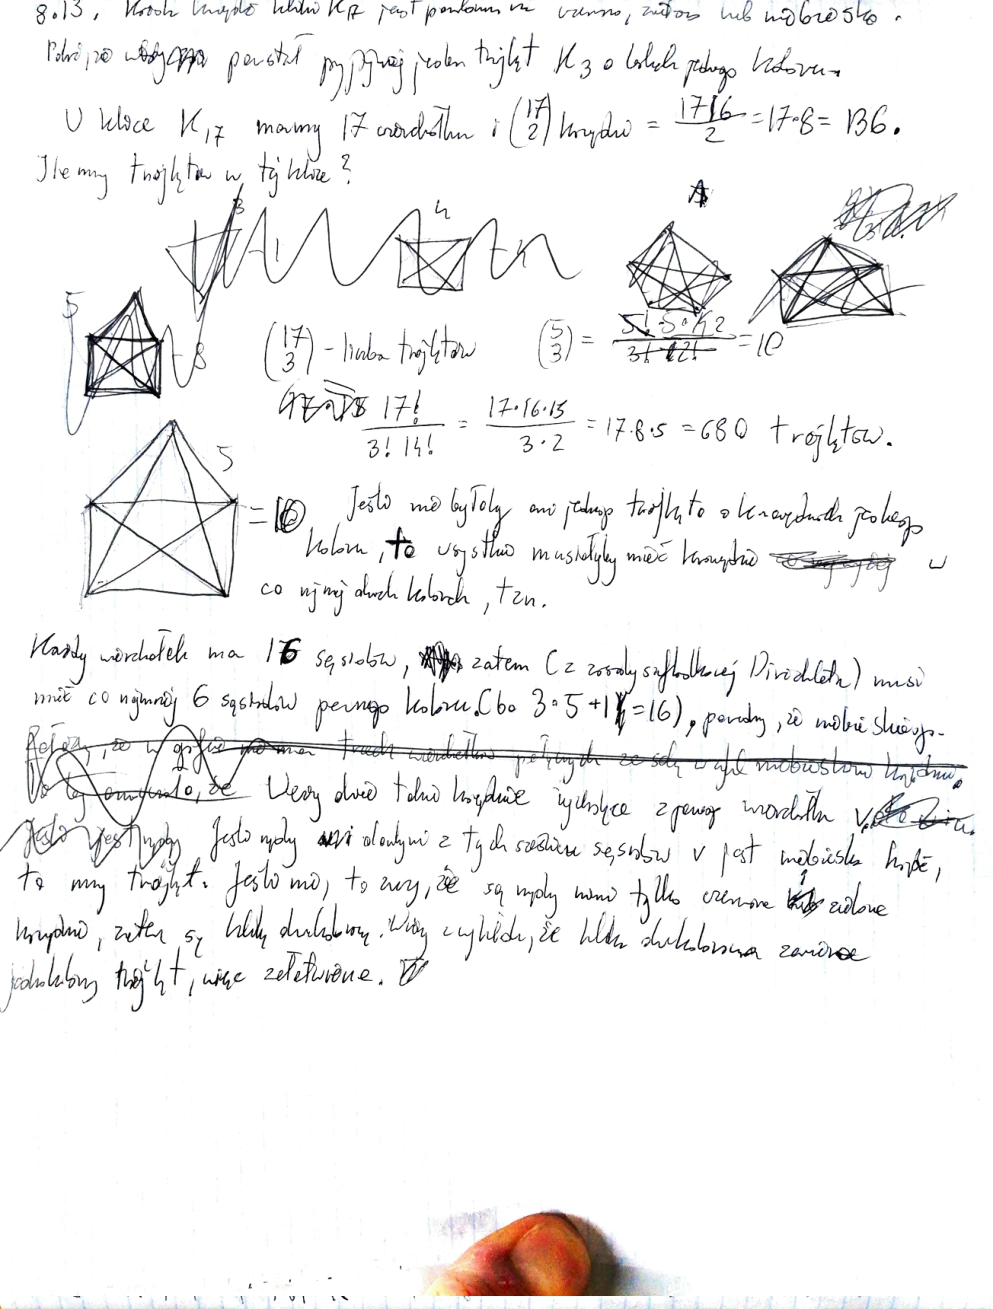 8.13. Każda krawędź kliki K17 jest na czerwono, zielono lub niebiesko.
powstał przynajmniej jeden trójkąt K3 o bokach jednego koloru.
W klice K17 mamy 17 wierzchołków i (17 2) krawędzi = 17·16/2 = 17·8 = 136.
Ile mamy trójkątów w tej klice?
3 4
5 8
(17 3) - liczba trójkątów (5 3) = 5!/3! 2! = 10
17!/3! 14! = 17·16·15/3·2 = 17·8·5 = 680 trójkątów.
5
= 10 Jeśli nie byłoby ani jednego trójkąta o krawędziach jednego
koloru, to wszystkie musiałyby mieć krawędzie w
co najmniej dwóch kolorach, tzn.
Każdy wierzchołek ma 16 sąsiadów, zatem (z zasady szufladkowej Dirichleta) musi
mieć co najmniej 6 sąsiadów pewnego koloru (bo 3·5+1=16), powiedzmy, że niebieskiego.
Weźmy dwie takie krawędzie wychodzące z pewnego wierzchołka v.
Jeśli między dowolnymi z tych sześciu sąsiadów v jest niebieska krawędź,
to mamy trójkąt. Jeśli nie, to znaczy, że są między nimi tylko czerwone i zielone
krawędzie, zatem są kliką dwukolorową. Wiemy z wykładu, że klika dwukolorowa zawiera
jednokolorowy trójkąt, więc załatwione.